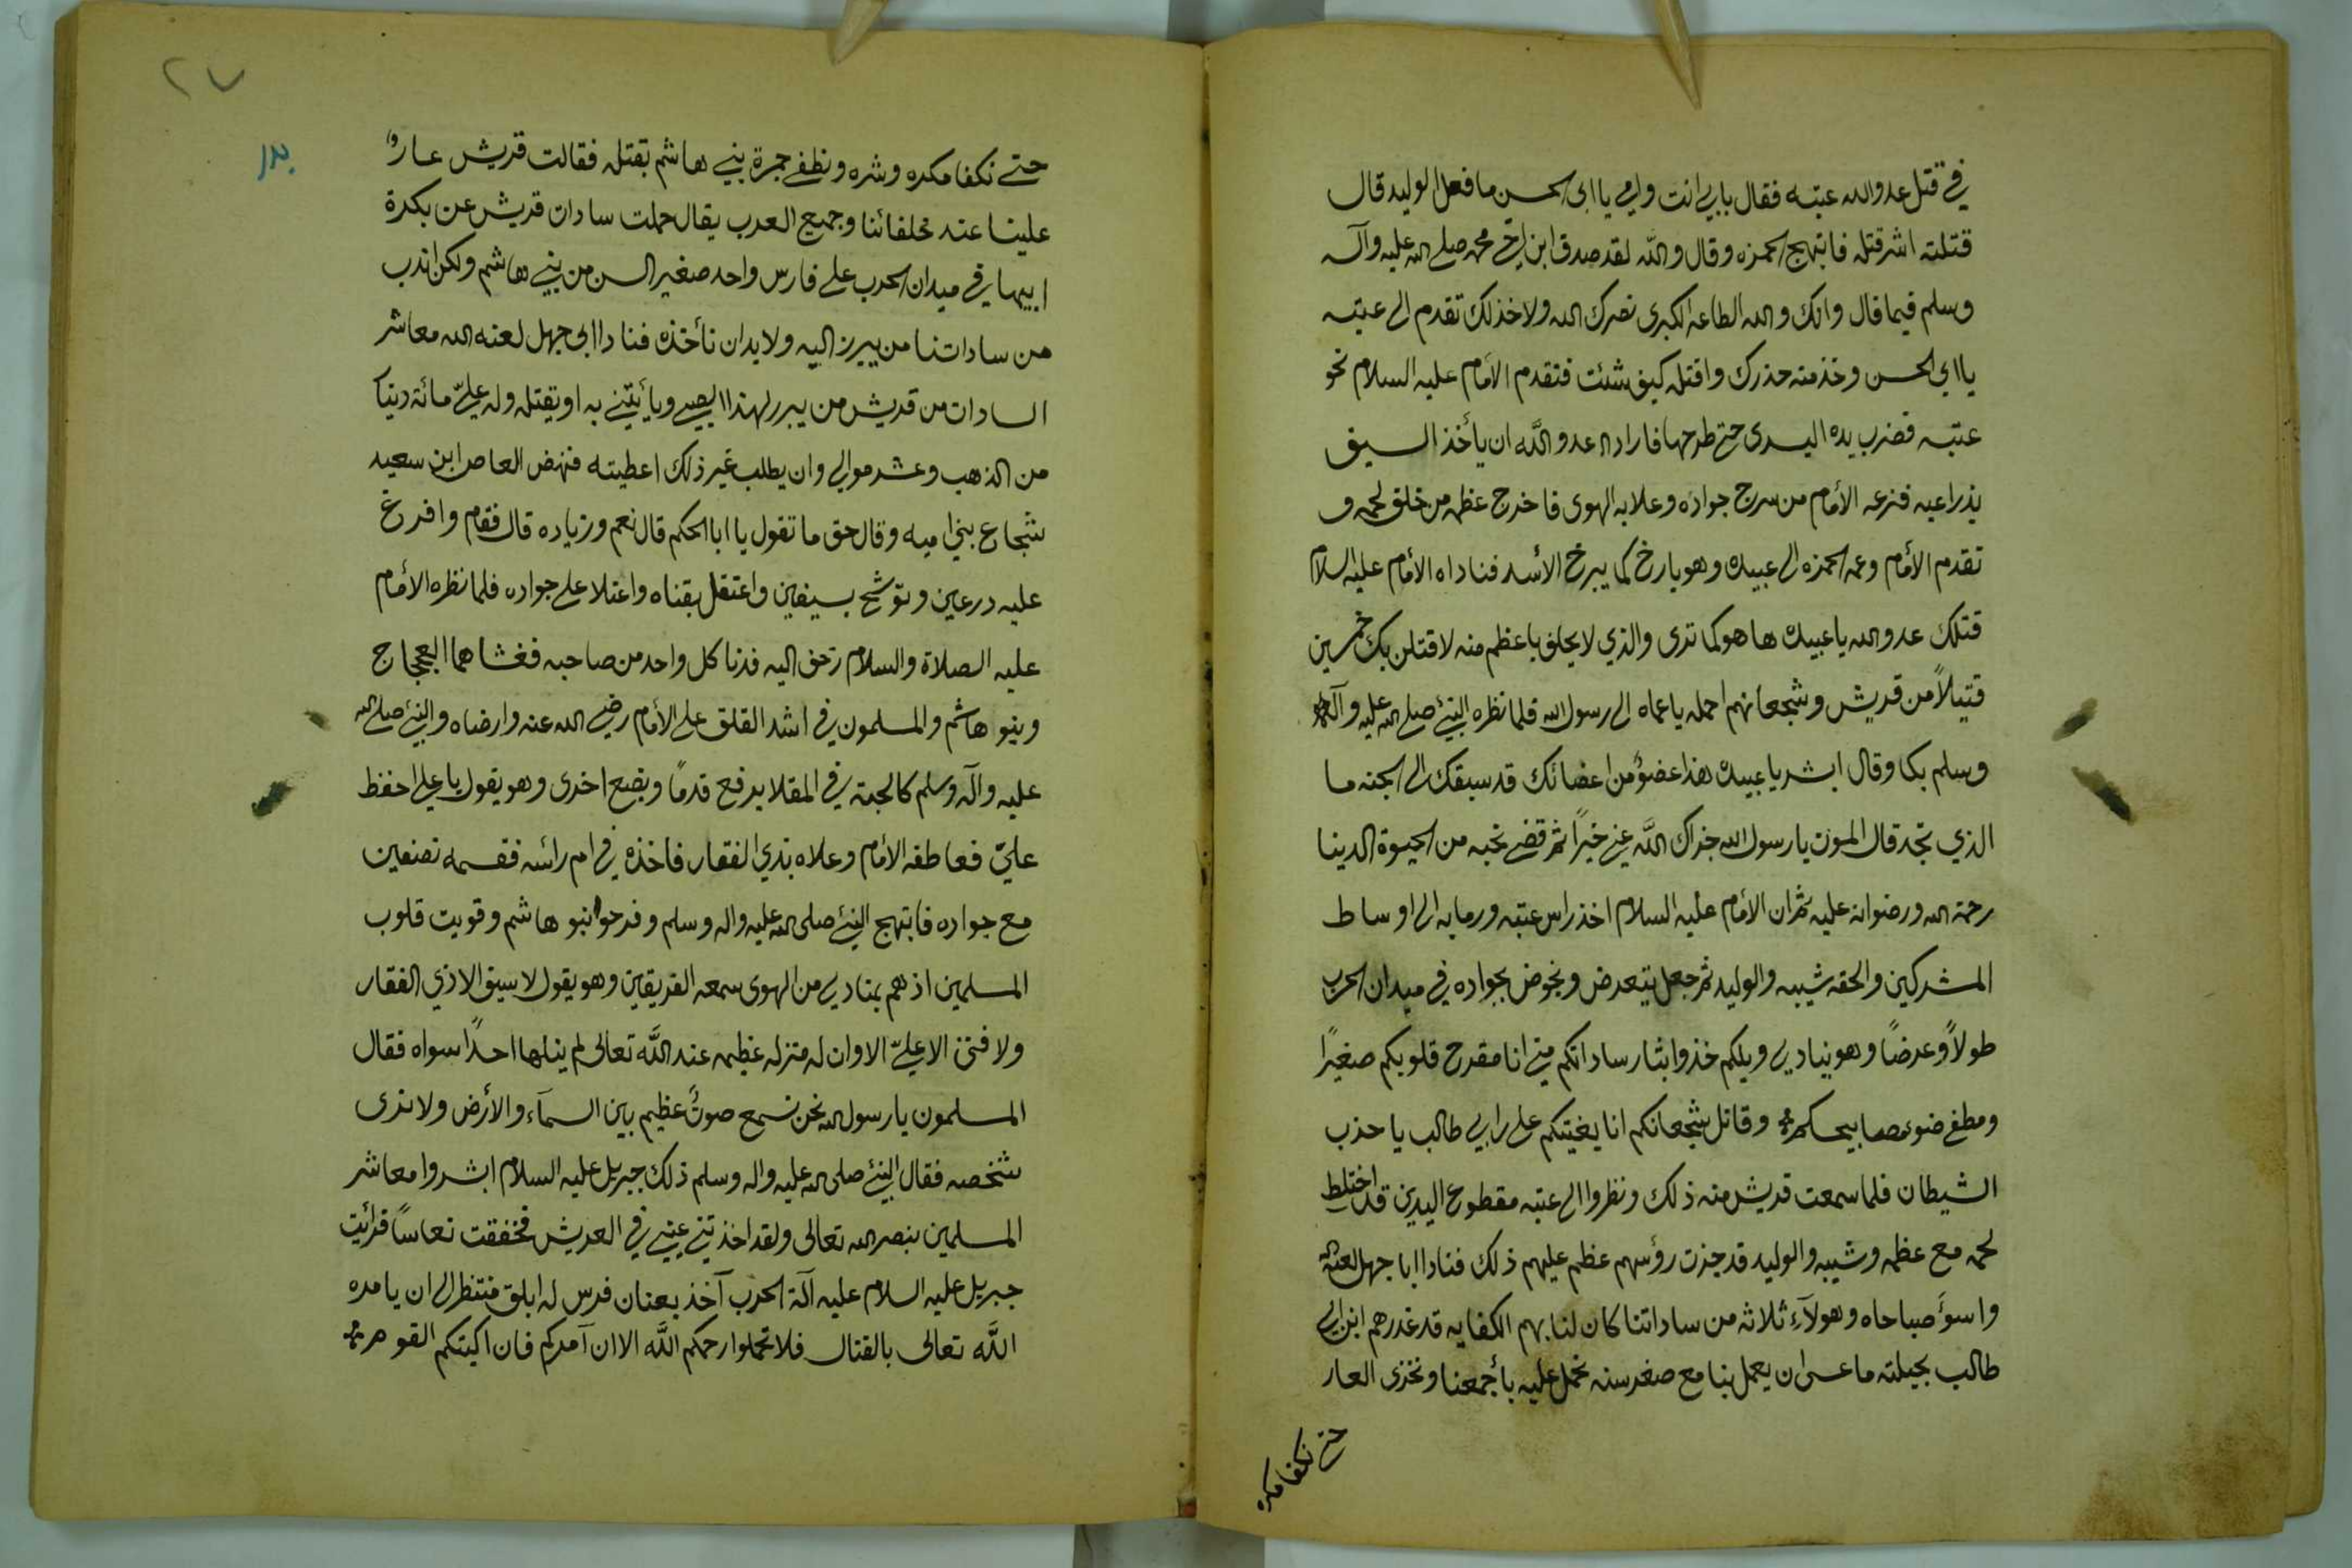 في قتل عدو الله عتبه فقال بابي انت وامي يا ابى الحسن ما فعل الوليد قال
قتلته اشر قتله فابتهج الحمزه وقال والله لقد صدق ابن اخي محمد صلى الله عليه وآله
وسلم فيما قال وانك والله الطاعه الكبرى نصرك الله ولا خذلك تقدم الى عتبه
يا ابى الحسن وخذ منه حذرك واقتله كيف شئت فتقدم الأمام عليه السلام نحو
عتبه فضرب يده اليسرى حتى طرحها فاراد عدو الله ان يأخذ السيف
بذراعيه فنزعه الأمام من سرج جواده وعلا به الهوى فاخرج عظمه من خلف لحمه و
تقدم الأمام وعمه الحمزه الى عبيدة وهو يارخ كما يبرخ الأسد فناداه الأمام عليه السلام
قتلك عدو الله يا عبيدة ها هو كما ترى والذي لا يحلف باعظم منه لاقتلن بك خمسين
قتيلاً من قريش وشجعانهم احمله يا عماه الى رسول الله فلما نظره النبئ صلى الله عليه وآله
وسلم بكا وقال ابشر يا عبيدة هذا عضؤ من اعضائك قد سبقك الى الجنه ما
الذي تجد قال الموت يا رسول الله جزاك الله عني خيراً ثم قضى نحبه من الحيوة الدينا
رحمة الله ورضوانه عليه ثم ان الأمام عليه السلام اخذ راس عتبه ورما به الى اوساط
المشركين والحقه شيبه والوليد ثم جعل يتعرض ويخوض بجواده في ميدان الحرب
طولاً وعرضاً وهو ينادي ويلكم خذوا بثار ساداتكم مني انا مقرح قلوبكم صغيرًا
ومطفي ضوء مصابيحكم وقاتل شجعانكم انا يغيتكم على ابن ابي طالب يا حزب
الشيطان فلما سمعت قريش منه ذلك ونظروا الى عتبه مقطوع اليدين قد اختلط
لحمه مع عظمه وشيبه والوليد قد جذت رؤسهم عظم عليهم ذلك فنادا ابا جهل لعنه الله
واسوَء صباحاه وهولآء ثلاثه من ساداتنا كان لنا بهم الكفايه قد غدرهم ابن ابي
طالب بحيلته ما عسى ان يعمل بنا مع صغر سنه نحمل عليه بأجمعنا ونخزى العار
حتى نكفا مكره
٢٧
بدر
حتى نكفا مكره وشره ونطفي جمرة بني هاشم بقتله فقالت قريش عاروا
علينا عند خلفائنا وجميع العرب يقال حملت سادات قريش عن بكرة
ابيها في ميدان الحرب على فارس واحد صغير السن من بني هاشم ولكن اندب
من ساداتنا من يبرز اليه ولا بد ان نأخذه فنادا ابى جهل لعنه الله معاشر
السادات من قريش من يبرز لهذا الصبي ويأتيني به او يقتله وله عليّ مائة دينا
من الذهب وعشر موالي وان يطلب غير ذلك اعطيته فنهض العاص ابن سعيد
شجاع بني اميه وقال حق ما تقول يا ابا الحكم قال نعم وزياده قال فقام وافرغ
عليه درعين وتوشح بسيفين واعتقل بقناه واعتلا على جواده فلما نظره الأمام
عليه الصلاة والسلام زحف اليه فدنا كل واحد من صاحبه فغشاهما العجاج
وبنو هاشم والمسلمون في اشد القلق على الأمام رضي الله عنه وارضاه والنبئ صلى الله
عليه وآله وسلم كالحبة في المقلا يرفع قدمًا ويضع اخرى وهو يقول يا علي احفظ
عليّ فعاطفه الأمام وعلاه بذي الفقار فاخذه في ام رأسه فقسمه نصفين
مع جواده فابتهج النبئ صلى الله عليه واله وسلم وفرحوا بنو هاشم وقويت قلوب
المسلمين اذ هم بمنادي من الهوى سمعه الفريقين وهو يقول لا سيف الا ذي الفقار
ولا فتى الا عليّ الا وان له منزله عظيمه عند الله تعالى لم ينلها احدًا سواه فقال
المسلمون يا رسول الله نحن نسمع صوتً عظيم بين السمآء والأرض ولا نرى
شخصه فقال النبئ صلى الله عليه واله وسلم ذلك جبريل عليه السلام ابشروا معاشر
المسلمين بنصر الله تعالى ولقد اخذتني عيني في العريش فخفقت نعاسًا فرأيت
جبريل عليه السلام عليه آلة الحرب آخذ بعنان فرس له ابلق منتظر الى ان يامره
الله تعالى بالقتال فلا تحملوا رحمكم الله الا ان آمركم فان اكبتكم القوم